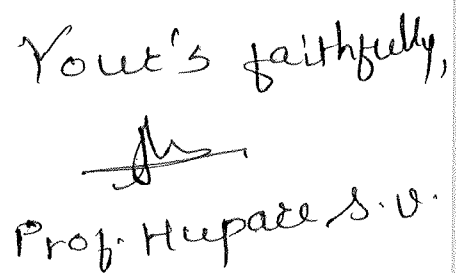 Your's faithfully,
Prof. Hupare S.V.